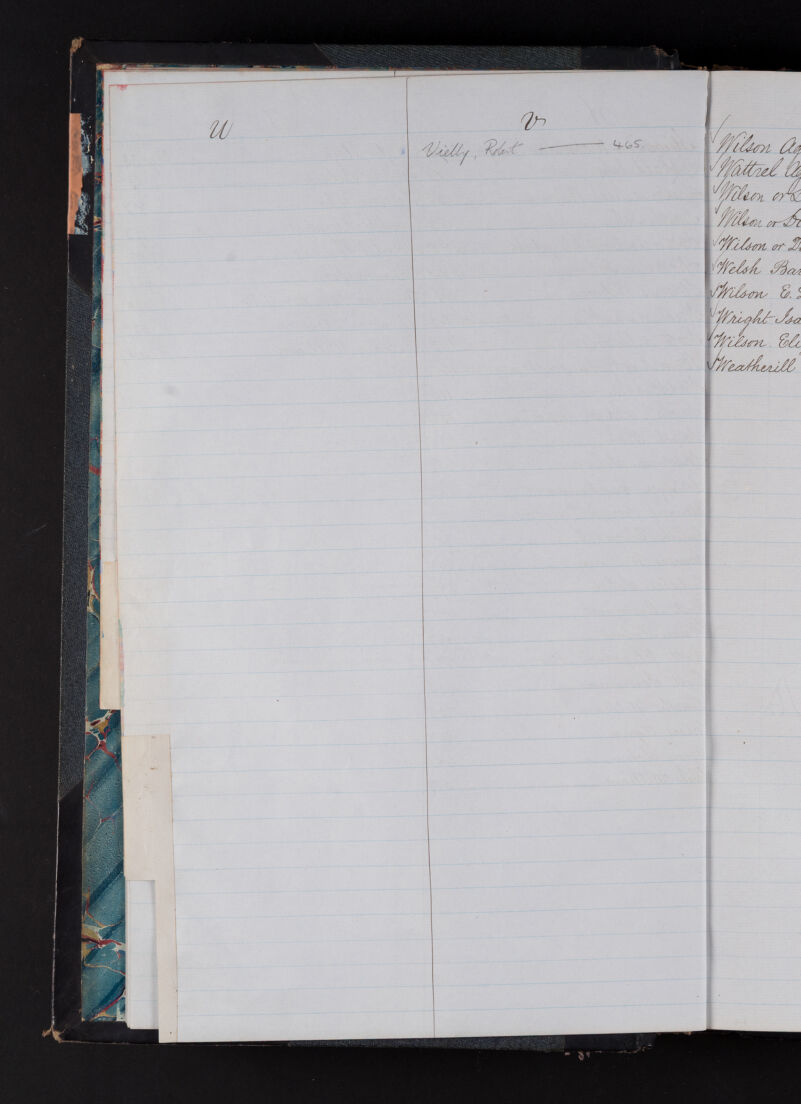 U
V
Vielly, Robert 465
Wilson
Wattrel
Wilson or
Wilson or
Wilson or
Welsh
Wilson E.
Wright
Wilson
Weatherill